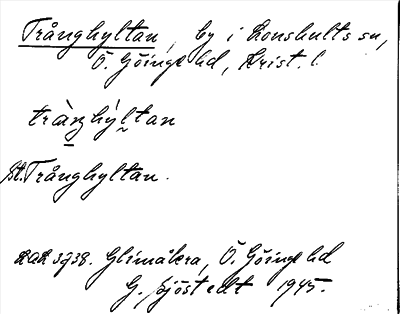 Trånghyltan, by i Lonshults sn,
Ö. Göinge hd, Krist. l.
tràŋhýltan
st. Trånghyltan.
LAL 3938. Glimåkra, Ö. Göinge hd
G. Sjöstedt 1945.